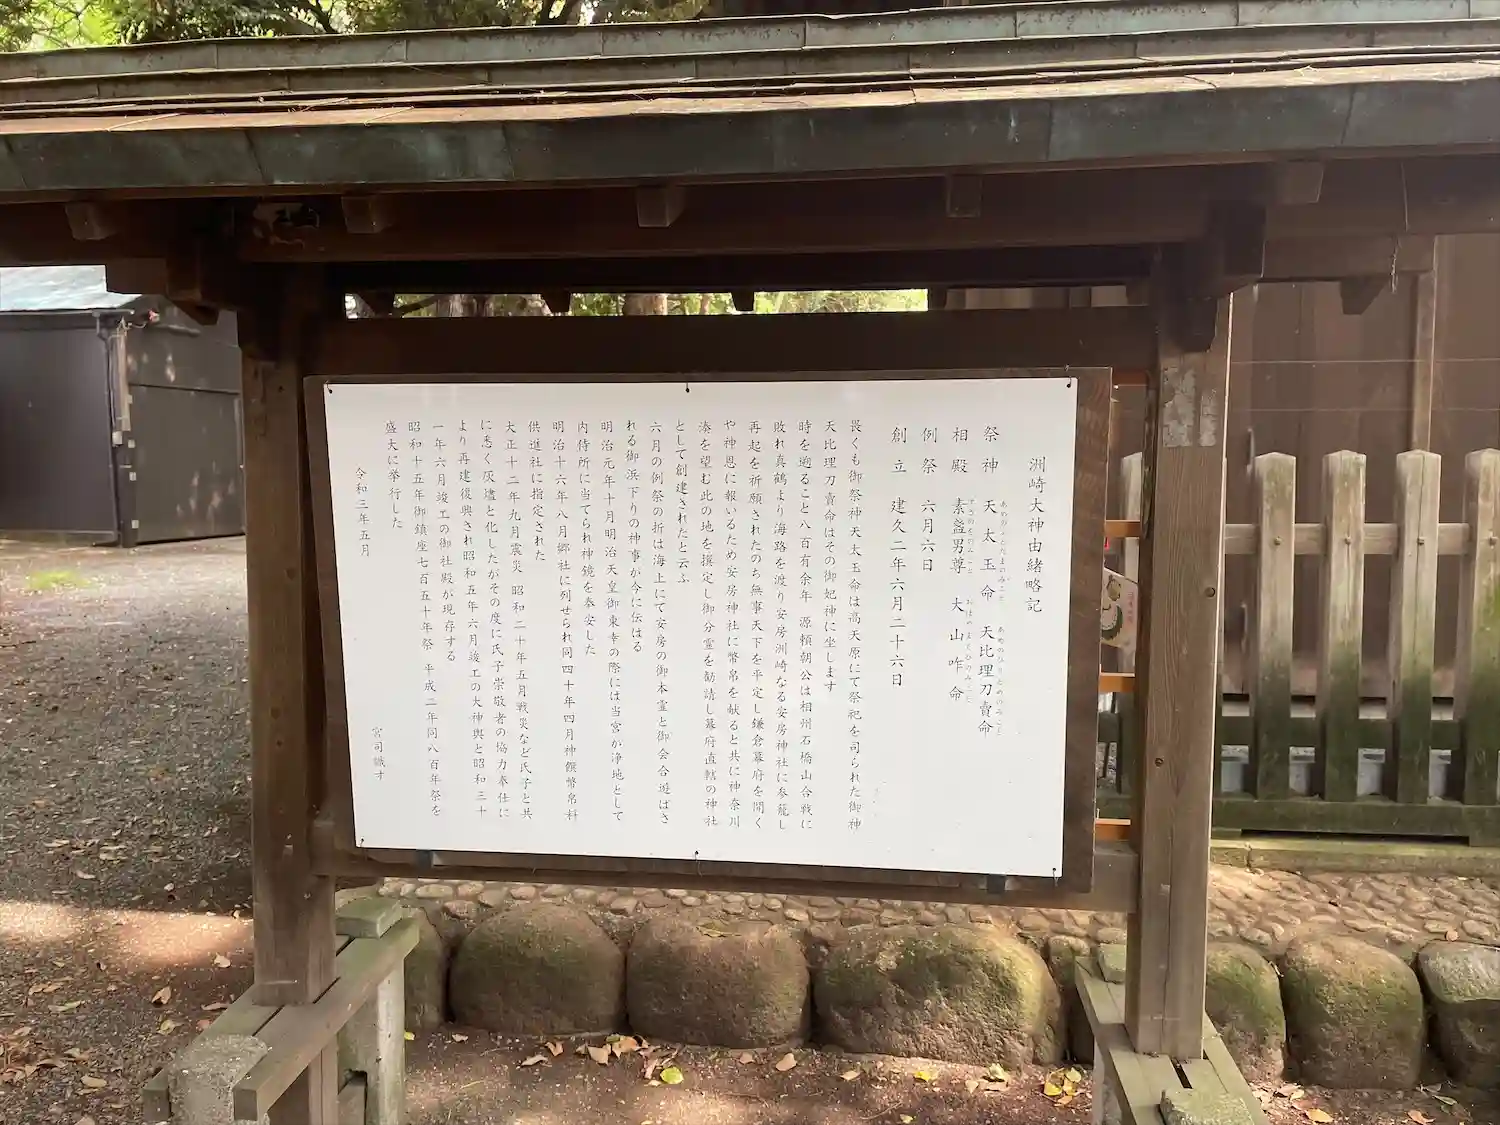 洲崎大神由緒略記
祭神 天太玉命 天比理刀賣命
相殿 素盞男尊 大山咋命
例祭 六月六日
創立 建久二年六月二十六日
畏くも御祭神天太玉命は高天原にて祭祀を司られた御神
天比理刀賣命はその御妃神に坐します
時を遡ること八百有余年 源頼朝公は相州石橋山合戦に
敗れ真鶴より海路を渡り安房洲崎なる安房神社に参籠し
再起を祈願されたのち無事天下を平定し鎌倉幕府を開く
や神恩に報いるため安房神社に幣帛を献ると共に神奈川
湊を望む此の地を撰定し御分霊を勧請し幕府直轄の神社
として創建されたと云ふ
六月の例祭の折は海上にて安房の御本霊と御会合遊ばさ
れる御浜下りの神事が今に伝はる
明治元年十月明治天皇御東幸の際には当宮が浄地として
内侍所に当てられ神鏡を奉安した
明治十六年八月郷社に列せられ同四十年四月神饌幣帛料
供進社に指定された
大正十二年九月震災 昭和二十年五月戦災など氏子と共
に悉く灰燼と化したがその度に氏子崇敬者の協力奉仕に
より再建復興され昭和五年六月竣工の大神輿と昭和三十
一年六月竣工の御社殿が現存する
昭和十五年御鎮座七百五十年祭 平成二年同八百年祭を
盛大に挙行した
令和三年五月
宮司識す